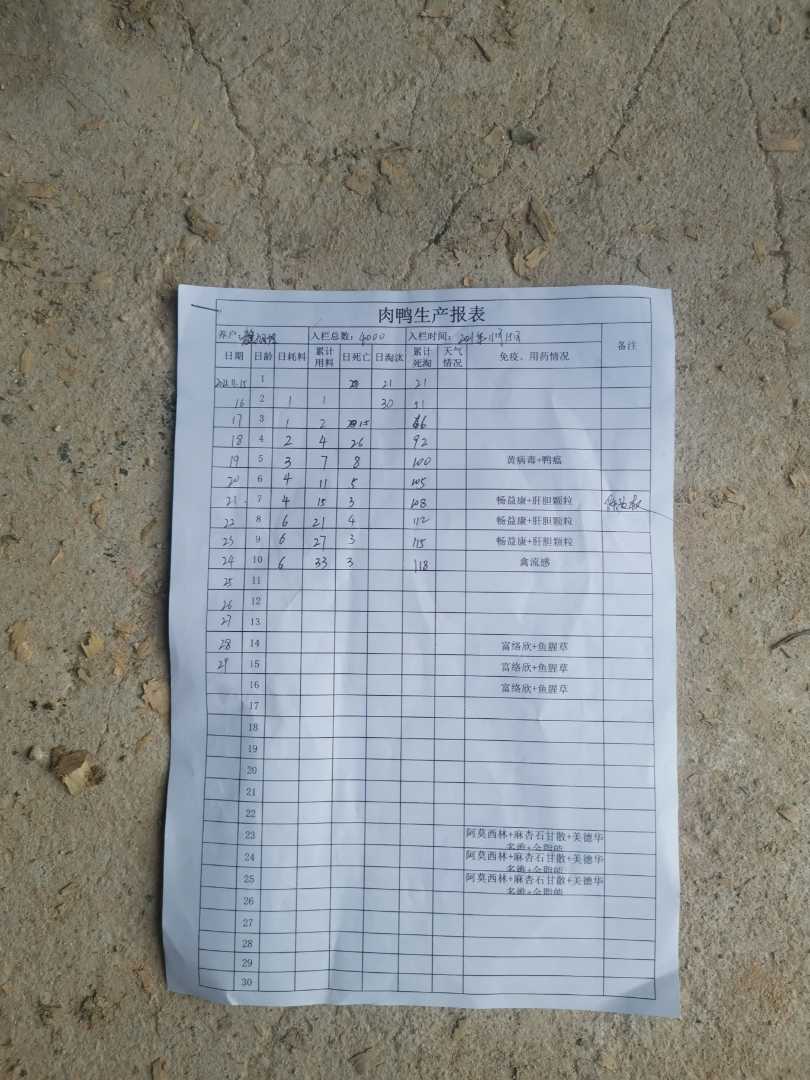 肉鸭生产报表
养户： 入栏总数：4000 入栏时间：2021年11月15日 备注
日期 日龄 日耗料 累计用料 日死亡 日淘汰 累计死淘 天气情况 免疫、用药情况
2021.11.15 1 21 21
16 2 1 1 30 51
17 3 1 2 15 66
18 4 2 4 26 92
19 5 3 7 8 100 黄病毒+鸭瘟
20 6 4 11 5 105
21 7 4 15 3 108 畅益康+肝胆颗粒
22 8 6 21 4 112 畅益康+肝胆颗粒
23 9 6 27 3 115 畅益康+肝胆颗粒
24 10 6 33 3 118 禽流感
25 11
26 12
27 13
28 14 富络欣+鱼腥草
29 15 富络欣+鱼腥草
16 富络欣+鱼腥草
17
18
19
20
21
22
23 阿莫西林+麻杏石甘散+美德华
24 阿莫西林+麻杏石甘散+美德华
25 阿莫西林+麻杏石甘散+美德华
26
27
28
29
30